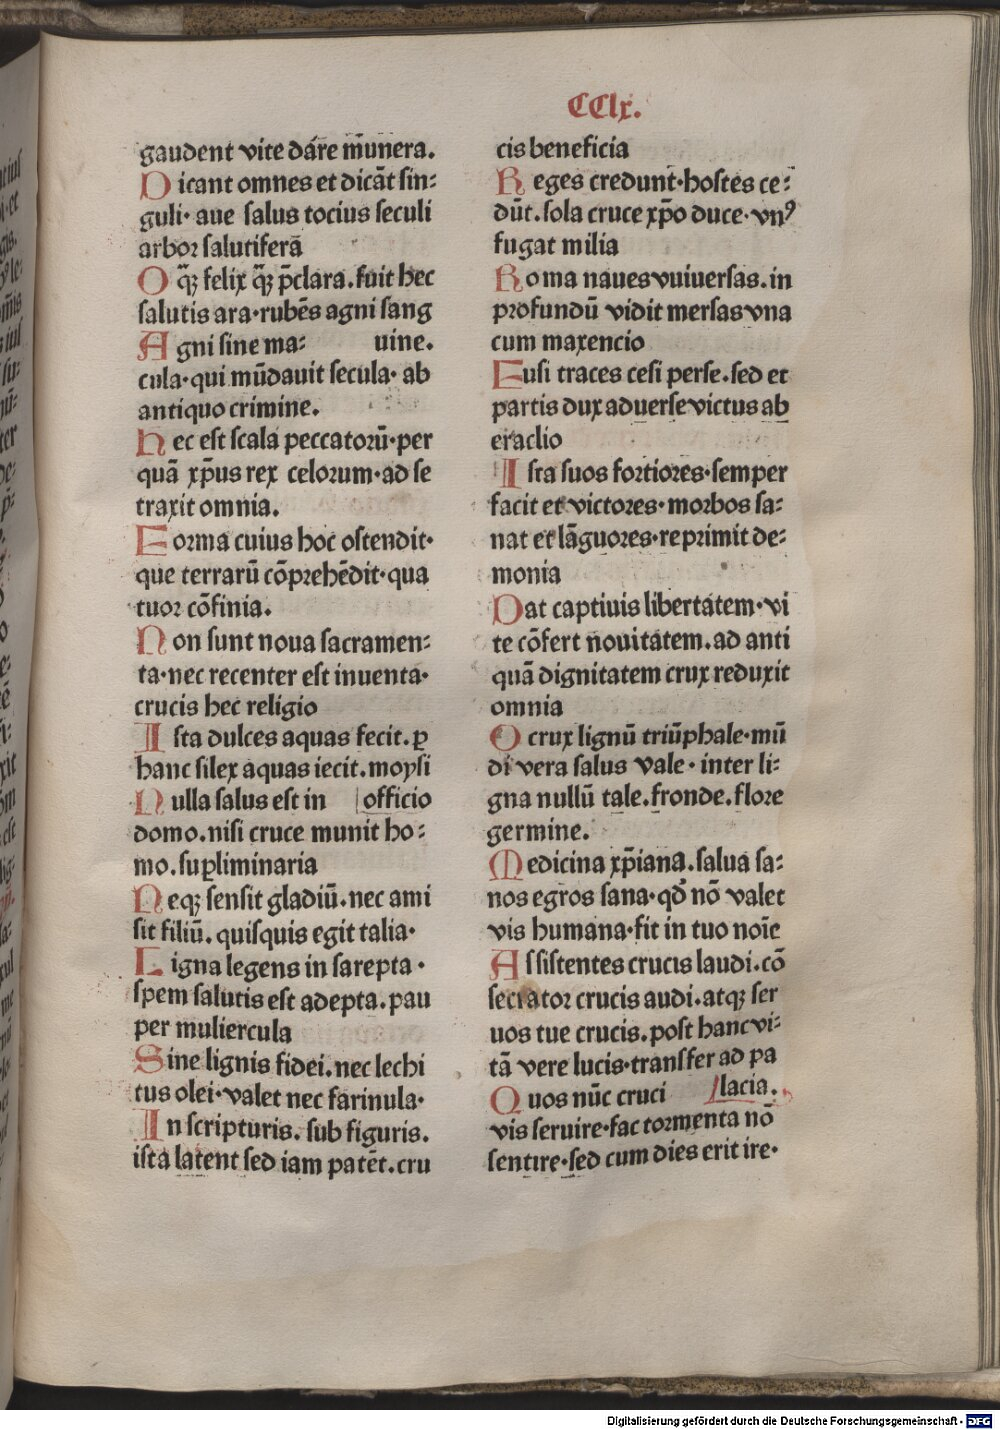 CClx.
gaudent vite dare m̄unera.
Dicant omnes et dicāt ſin⸗
guli· aue ſalus tocius ſeculi
arboꝛ ſalutiferā
O q̃ꝫ felix q̃ꝫ p̄clara. fuit hec
ſalutis ara·rubēs agni ſang
Agni ſine ma⸗ uine.
cula·qui mūdauit ſecula· ab
antiquo crimine.
Hec eſt ſcala peccatoꝛū·per
quā xp̄us rex celorum·ad ſe
traxit omnia.
Forma cuius hoc oſtendit·
que terrarū cōprehēdit·qua
tuoꝛ cōfinia.
Non ſunt noua ſacramen⸗
ta·nec recenter eſt inuenta·
crucis hec religio
Iſta dulces aquas fecit. ꝑ
hanc ſilex aquas iecit. moyſi
Nulla ſalus eſt in officio
domo. niſi cruce munit ho⸗
mo. ſuꝑliminaria
Neqꝫ ſenſit gladiū. nec ami
ſit filiū. quiſquis egit talia·
Ligna legens in ſarepta·
ſpem ſalutis eſt adepta. pau
per muliercula
Sine lignis fidei. nec lechi
tus olei·valet nec farinula·
In ſcripturis. ſub figuris.
iſta latent ſed iam patēt. cru
cis beneficia
Reges credunt·hoſtes ce⸗
dūt. ſola cruce xp̄o duce·vnꝰ
fugat milia
Roma naues vuiuerſas. in
pꝛofundū vidit merſas vna
cum maxencio
Fuſi traces ceſi perſe. ſed et
partis dux aduerſe victus ab
eraclio
Iſta ſuos foꝛtioꝛes·ſemper
facit et victoꝛes· moꝛbos ſa⸗
nat et lāguoꝛes·repꝛimit de⸗
monia
Dat captiuis libertatem·vi
te cōfert nouitatem. ad anti
quā dignitatem crux reduxit
omnia
O crux lignū triūphale·mū
di vera ſalus vale· inter li⸗
gna nullū tale. fronde. floꝛe
germine.
Medicina xp̄iana. ſalua ſa⸗
nos egros ſana·qd̄ nō valet
vis humana·fit in tuo noīe
Aſſiſtentes crucis laudi. cō
ſecratoꝛ crucis audi. atqꝫ ſer
uos tue crucis. poſt hanc vi⸗
tā vere lucis·tranſfer ad pa
Quos nūc cruci lacia.
vis ſeruire·fac toꝛmenta nō
ſentire·ſed cum dies erit ire·
Digitalisierung gefördert durch die Deutsche Forschungsgemeinschaft - DFG